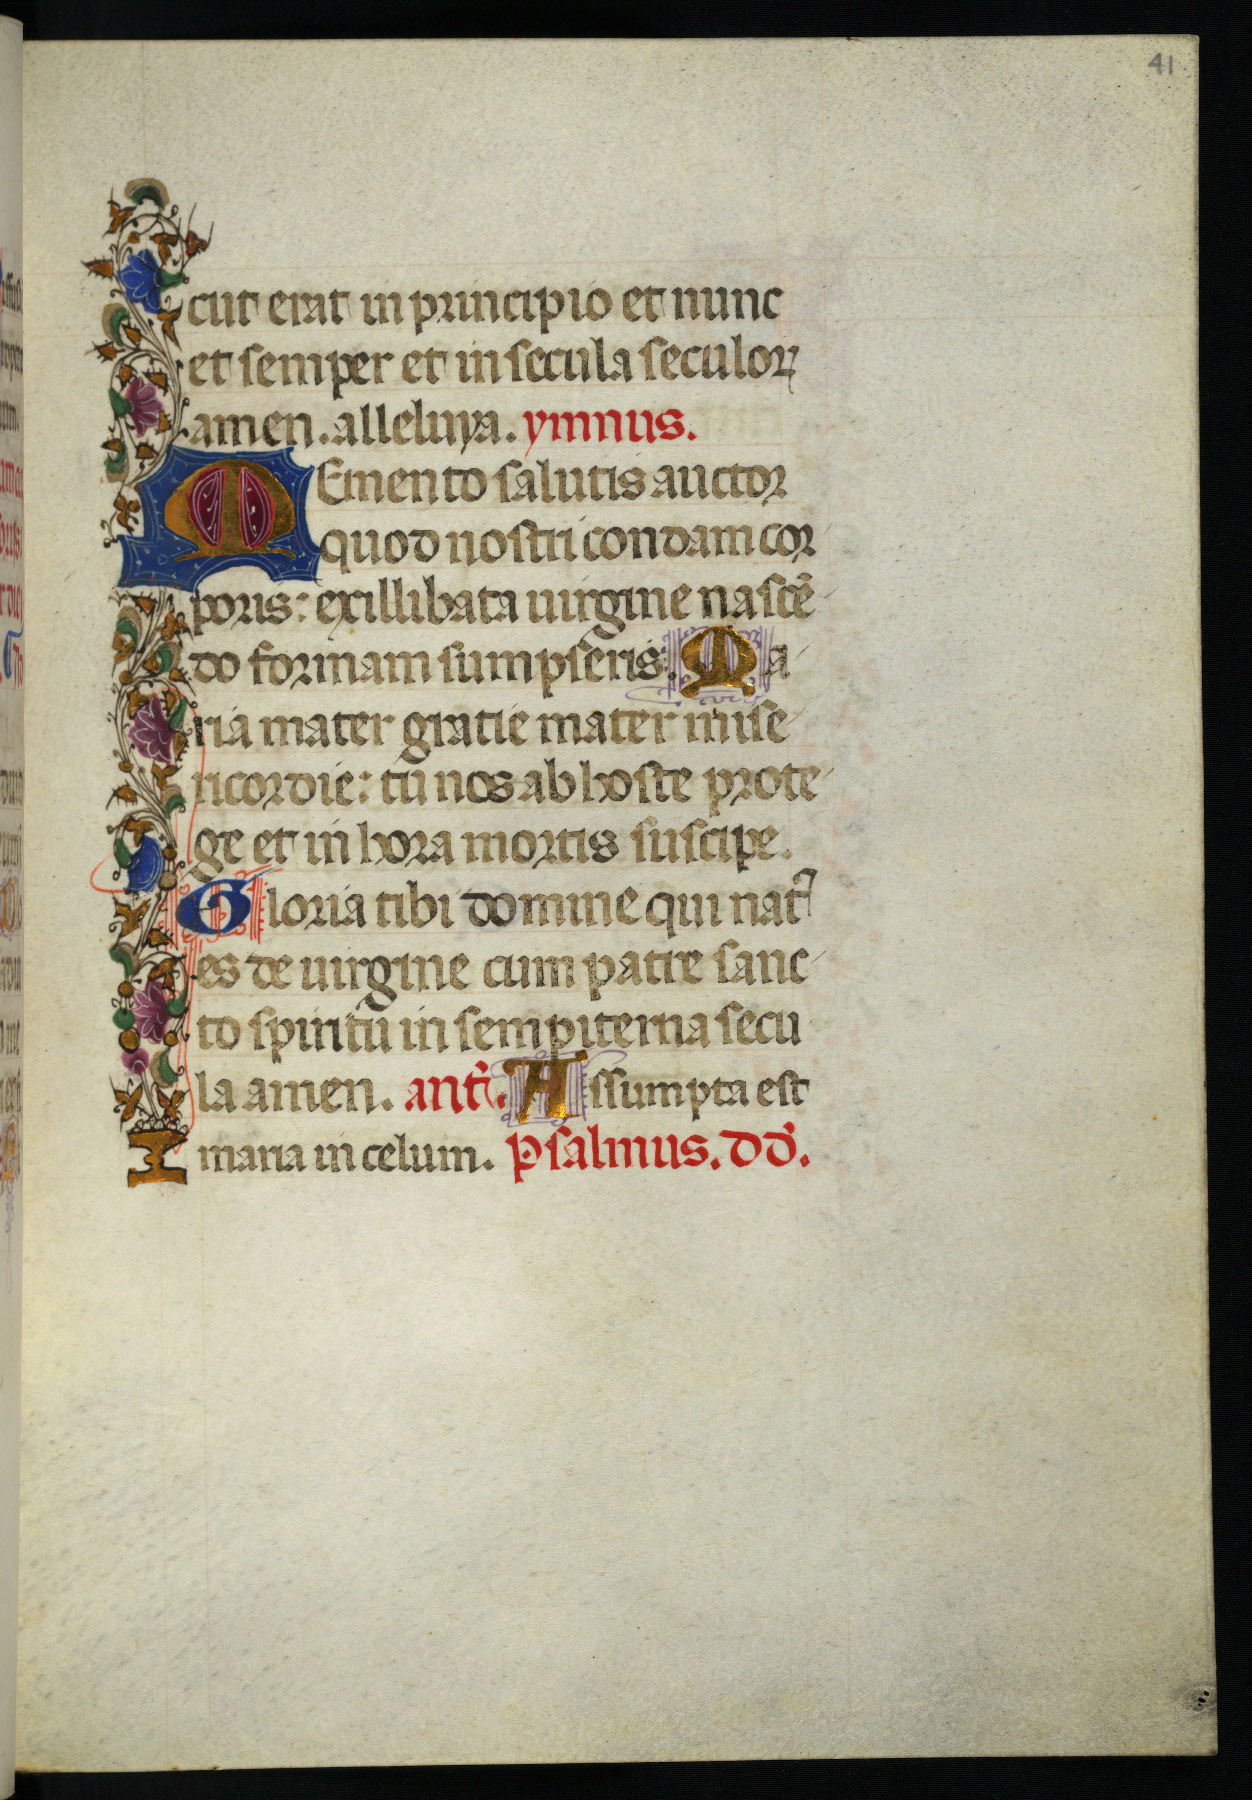 41
cut erat in principio et nunc
et semper et in secula seculoꝝ
amen. alleluya. ymnus.
MEmento salutis auctor
quod nostri condam cor
poris: exillibata uirgine nascē
do formam sumpseris. Ma
ria mater gratie mater mise
ricordie: tu nos ab hoste prote
ge et in hora mortis suscipe.
Gloria tibi domine qui natꝰ
es de uirgine cum patre sanc
to spiritu in sempiterna secu
la amen. antᷓ. Assumpta est
maria in celum. Psalmus. dd̄.